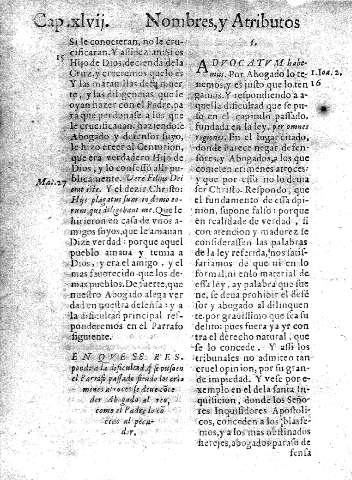 Cap.xlvij. Nombres, y Atributos
15
Si le conocieran, no le cru-
cificaran. Y assi exam. Si es
Hijo de Dios, decienda de la
Cruz, y creeremos que lo es
Y las marauillas de q. muer
te, y las diligencias que le
oyan hazer con el Padre, pa
ra que perdonase a los que
le crucificauan, haziendose
Abogado, y defensor suyo,
le hizo creer al Centurion,
que era verdadero Hijo de
Dios, y lo confessó alli pu-
blicamente. Vere Filius Dei
Mat.27
erat iste. Y el dezir Christo:
His plagatus sum in domo eo-
rum, qui diligebant me. Que le
hirieron en casa de vnos a-
migos suyos, que le amauan
Dize verdad: porque aquel
pueblo amaua y temia a
Dios, y era el amigo, y el
mas fauorecido que los de-
mas pueblos. De suerte, que
nuestro Abogado alega ver
dad en nuestra defensa: y a
la dificultad principal res-
ponderemos en el Parrafo
siguiente.
EN QVE SE RES-
ponde a la dificultad, q̃ se puso en
el Parrafo passado siendo los cri-
mines atroces se deue conce-
der Abogado al reo,
como el Padre lo cõ
cede al peca-
dor.
ADVOCATVM habe-
mus. Por Abogado lo te-
1.Ioa.2,
nemos, y es justo que lo ten
16
gamos. Y respondiendo a a-
quella dificultad que se pu-
so en el capitulo passado,
fundada en la ley, per omnes
En el lugar citado,
donde parece negar defen-
sores, y Abogados, a los que
cometen crimenes atroces:
y que por esso no lo deuia
ser Christo. Respondo, que
el fundamento de essa opi-
nion, supone falso: porque
en realidad de verdad, si
con atencion y madurez se
considerassen las palabras
de la ley referida, nos satis-
fariamos de que ni en lo
formal, ni en lo material de
essa ley, ay palabra que sue
ne, se deua prohibir el defẽ
sor y abogado al delinquen
te, por grauissimo que sea su
delito: pues fuera ya yr con
tra el derecho natural, que
se lo concede. Y assi los
tribunales no admiten tan
cruel opinion, por su gran-
de impiedad. Y vese por e-
xemplo en el de la santa In-
quisicion, donde los Seño-
res Inquisidores Apostoli-
cos, conceden a los blasfe-
mos, y a los mas obstinados
herejes, abogados para su de
fensa